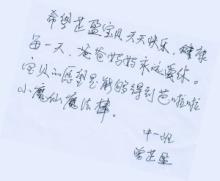 希望芷盈宝贝天天快乐、健康
每一天、爸爸妈妈永远爱你。
宝贝的愿望是能够得到芭啦啦
小魔仙魔法棒。
中一班
曾芷盈